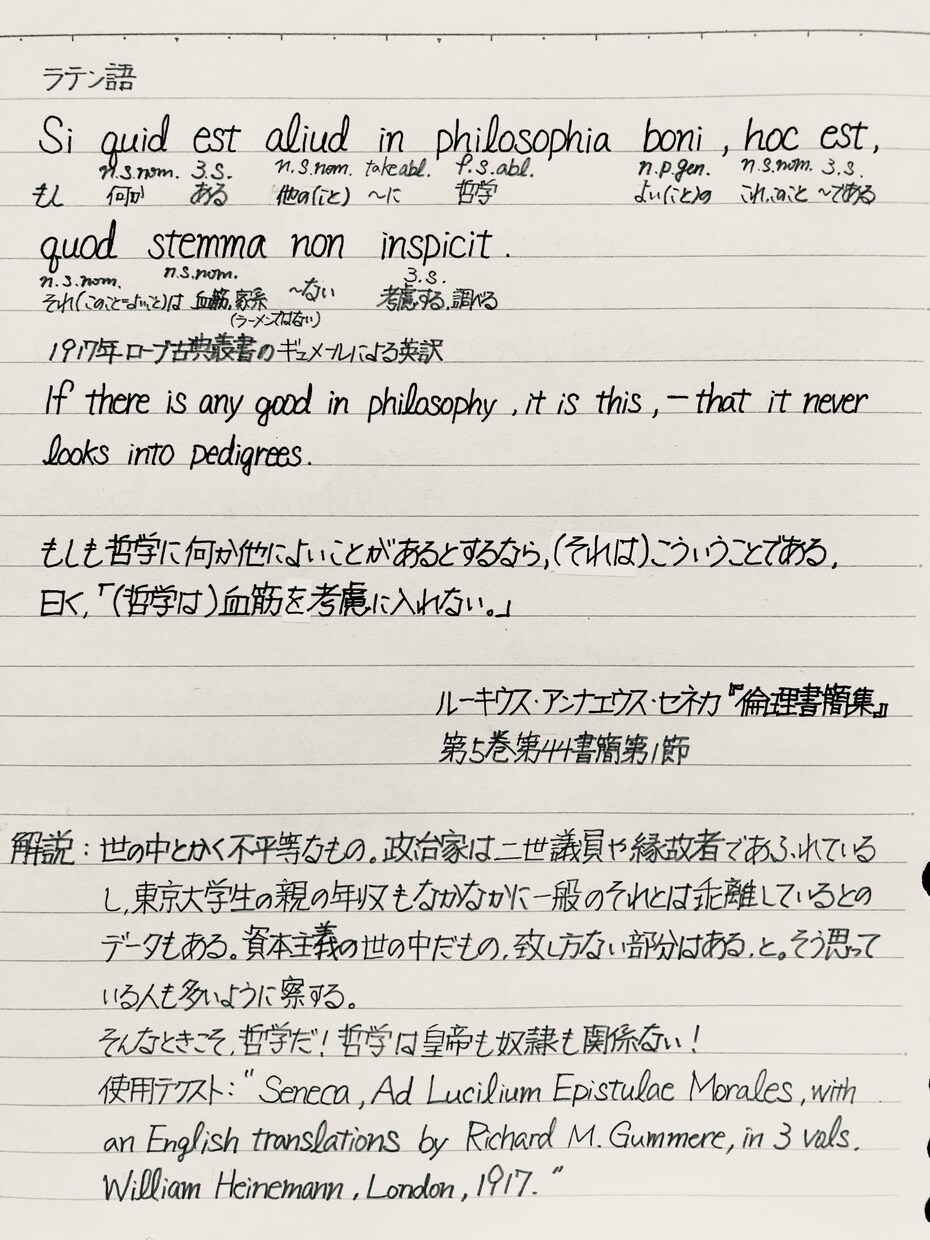 ラテン語
Si quid est aliud in philosophia boni, hoc est,
n.s.nom. 3.s. n.s.nom. take abl. f.s.abl. n.p.gen. n.s.nom. 3.s.
もし 何か ある 他の(こと) 〜に 哲学 よい(こと)の これ,このこと 〜である
quod stemma non inspicit.
n.s.nom. n.s.nom. 3.s.
それ(このこと=よいこと)は 血筋,家系 〜ない 考慮する,調べる
(ラーメンではない)
1917年ローブ古典叢書のギュメールによる英訳
If there is any good in philosophy, it is this, — that it never
looks into pedigrees.
もしも哲学に何か他によいことがあるとするなら,(それは)こういうことである,
曰く,「(哲学は)血筋を考慮に入れない。」
ルーキウス・アンナエウス・セネカ『倫理書簡集』
第5巻第44書簡第1節
解説:世の中とかく不平等なもの。政治家は二世議員や縁故者であふれている
し,東京大学生の親の年収もなかなかに一般のそれとは乖離しているとの
データもある。資本主義の世の中だもの,致し方ない部分はある,と。そう思って
いる人も多いように察する。
そんなときこそ,哲学だ!哲学は皇帝も奴隷も関係ない!
使用テクスト:"Seneca, Ad Lucilium Epistulae Morales, with
an English translations by Richard M. Gummere, in 3 vols.
William Heinemann, London, 1917."